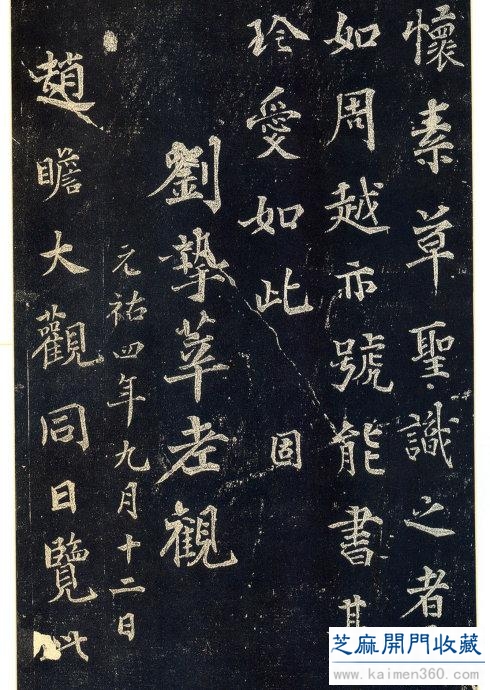 懷素草聖識之者
如周越亦號能書其
珍愛如此 固
劉摯莘老觀
元祐四年九月十二日
趙瞻大觀同日覽此
芝麻開門收藏
www.kaimen360.com